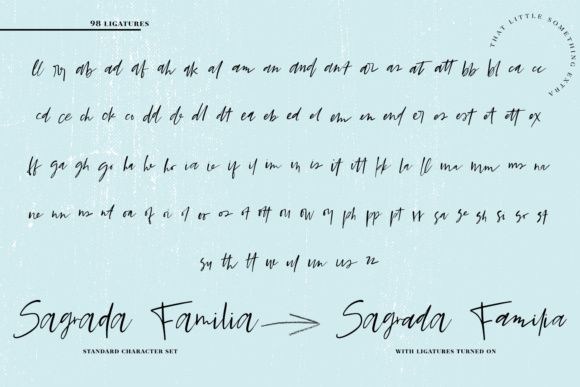 98 LIGATURES
THAT LITTLE SOMETHING EXTRA
ll ry ab ad af ah ak al am an and ant ar as at att bb bl ca cc
cd ce ch ck co dd de dl dt ea eb ed el em en end er es est et ett ex
ff ga gh go ha he ho ia ie if il im in is it itt kk la ll ma mm ms na
ne nn ns nt oa of oi ol or os ot ott ou ow oy ph pp pt rr sa se sh si sr st
su th tt ue ul un us zz
Sagrada Familia Sagrada Familia
STANDARD CHARACTER SET WITH LIGATURES TURNED ON